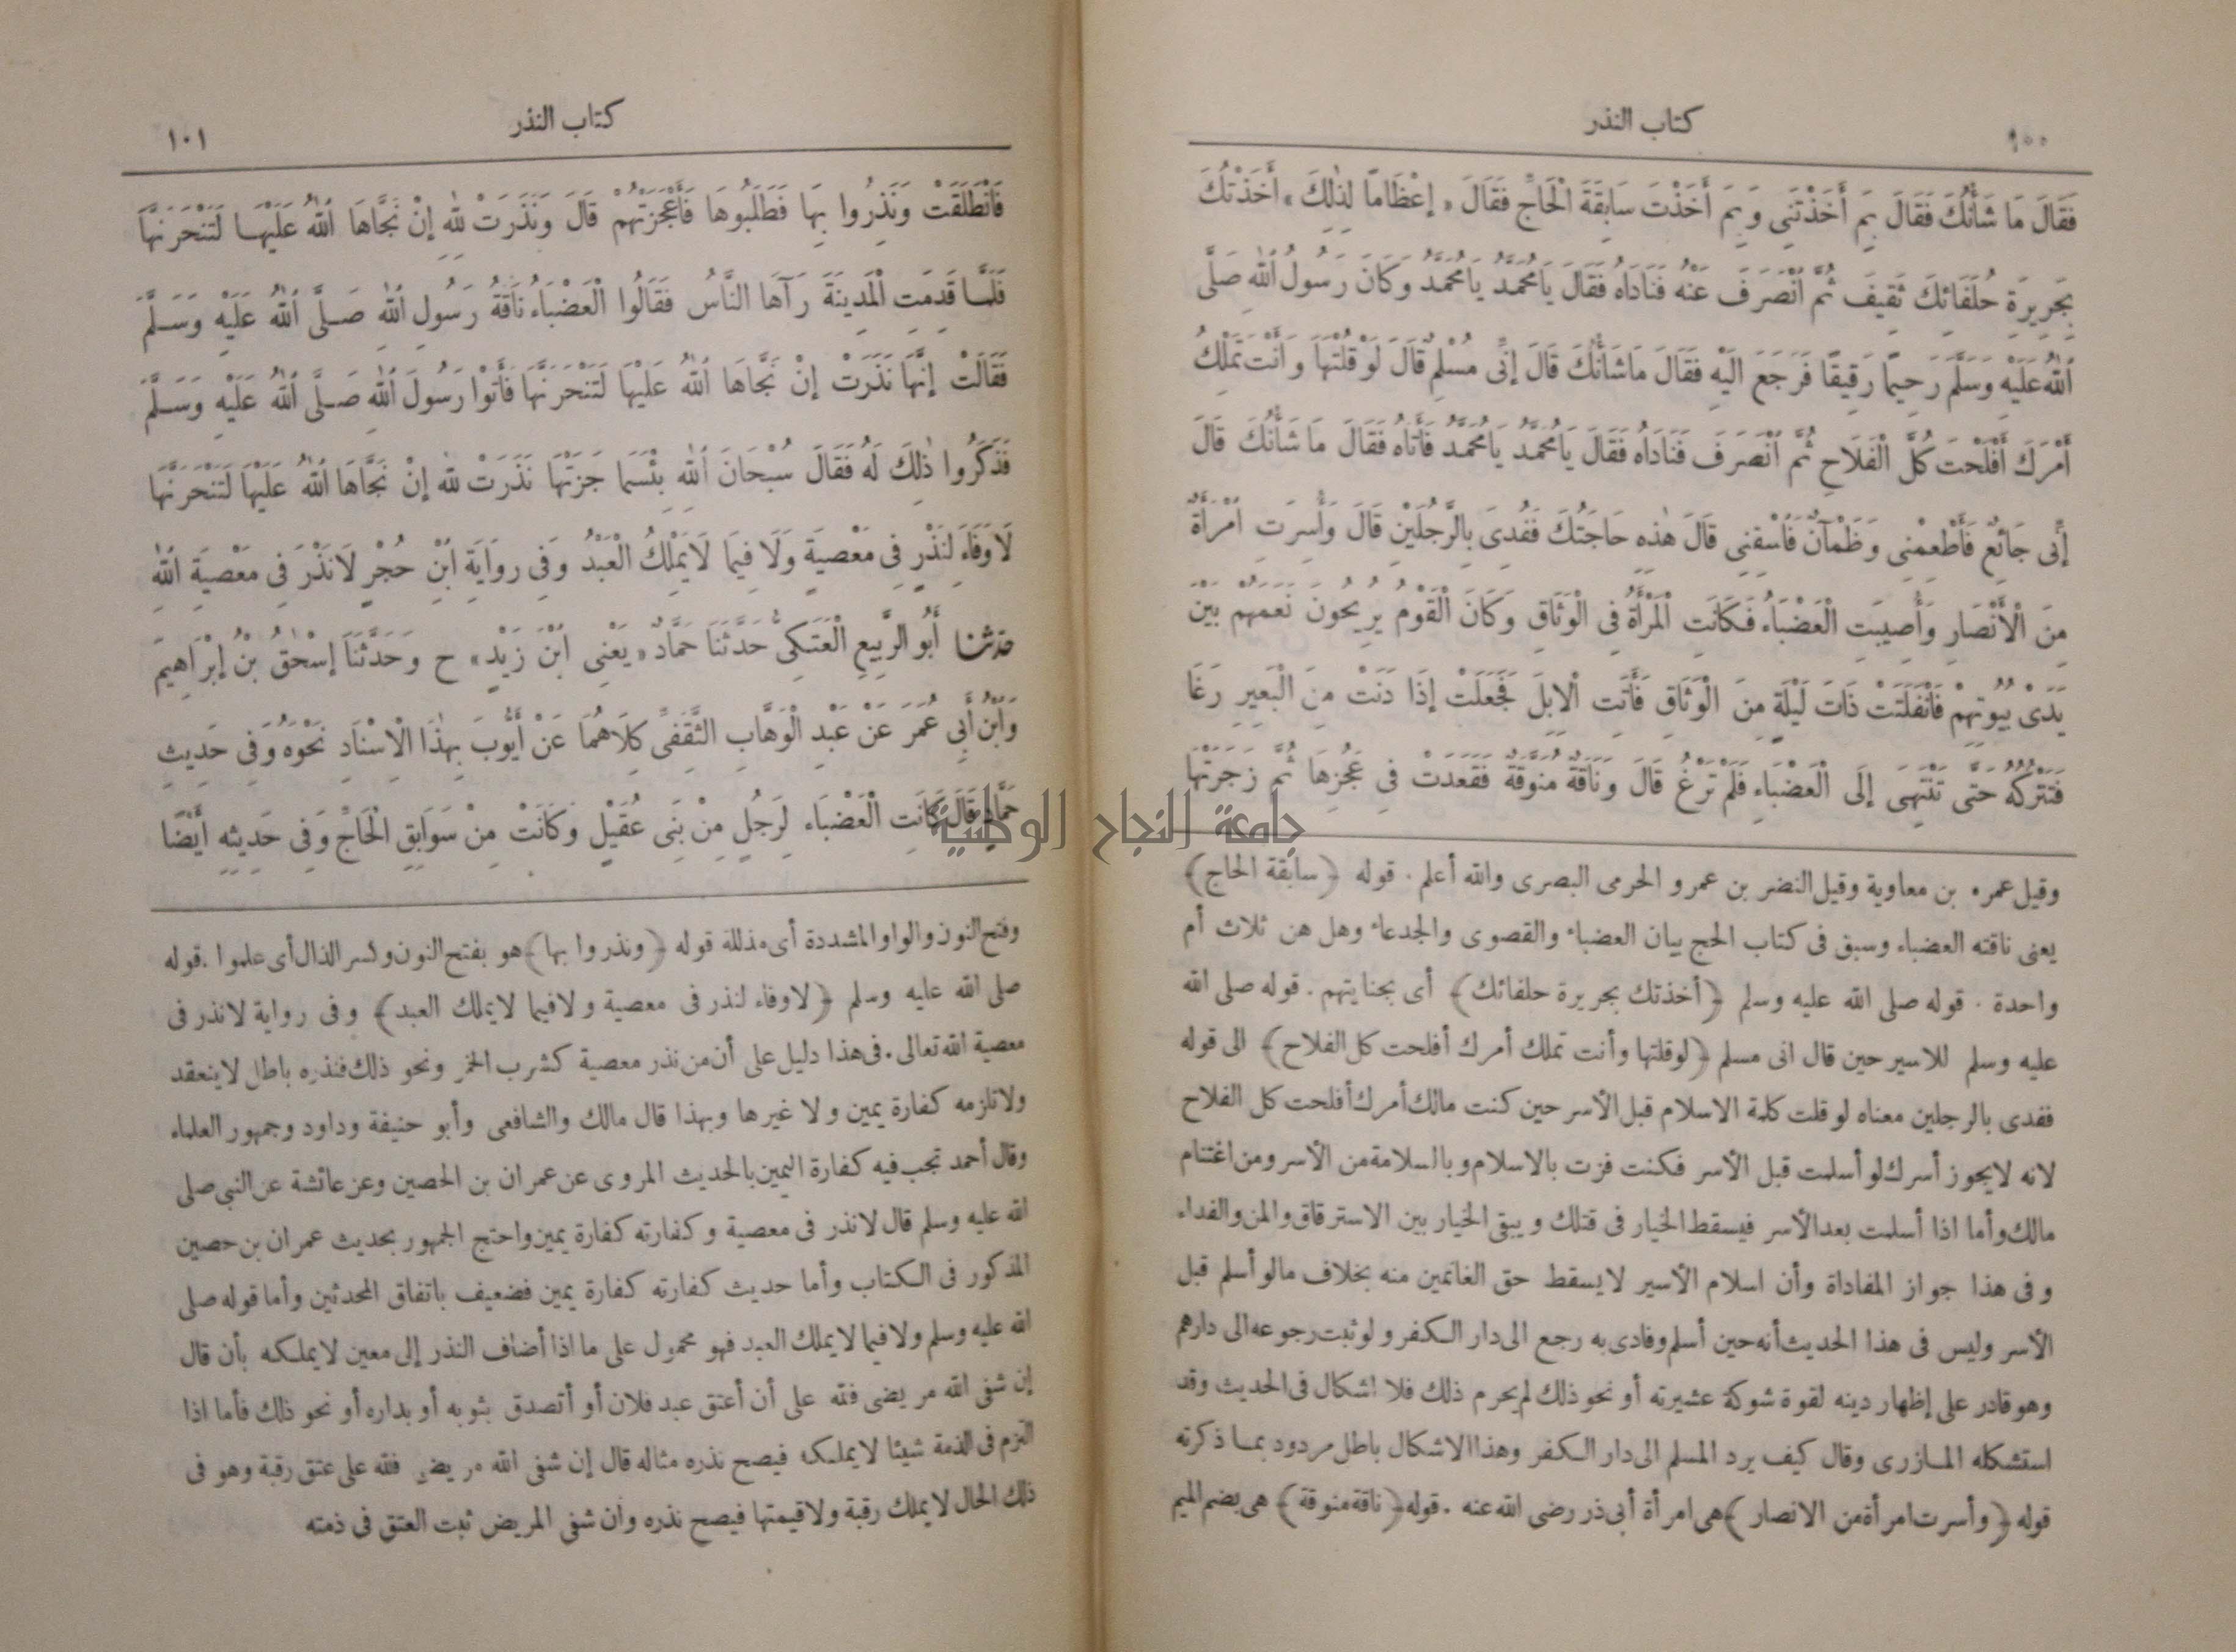 ١٠٠
كتاب النذر
فَقَالَ مَا شَأْنُكَ فَقَالَ بِمَ أَخَذْتَنِى وَبِمَ أَخَذْتَ سَابِقَةَ الْحَاجِّ فَقَالَ «إِعْظَامًا لِذٰلِكَ» أَخَذْتُكَ
بِجَرِيرَةِ حُلَفَائِكَ ثَقِيفَ ثُمَّ انْصَرَفَ عَنْهُ فَنَادَاهُ فَقَالَ يَامُحَمَّدُ يَامُحَمَّدُ وَكَانَ رَسُولُ اللهِ صَلَّى
اللهُ عَلَيْهِ وَسَلَّمَ رَحِيمًا رَقِيقًا فَرَجَعَ الَيْهِ فَقَالَ مَاشَأْنُكَ قَالَ إِنِّى مُسْلِمٌ قَالَ لَوْ قُلْتَهَا وَأَنْتَ تَمْلِكُ
أَمْرَكَ أَفْلَحْتَ كُلَّ الْفَلَاحِ ثُمَّ انْصَرَفَ فَنَادَاهُ فَقَالَ يَامُحَمَّدُ يَامُحَمَّدُ فَأَتَاهُ فَقَالَ مَا شَأْنُكَ قَالَ
إِنِّى جَائِعٌ فَأَطْعِمْنِى وَظَمْآنُ فَاسْقِنِى قَالَ هٰذِهِ حَاجَتُكَ فَفُدِىَ بِالرَّجُلَيْنِ قَالَ وَأُسِرَتِ امْرَأَةٌ
مِنَ الْأَنْصَارِ وَأُصِيبَتِ الْعَضْبَاءُ فَكَانَتِ الْمَرْأَةُ فِى الْوَثَاقِ وَكَانَ الْقَوْمُ يُرِيحُونَ نَعَمَهُمْ بَيْنَ
يَدَىْ بُيُوتِهِمْ فَانْفَلَتَتْ ذَاتَ لَيْلَةٍ مِنَ الْوَثَاقِ فَأَتَتِ الْإِبِلَ فَجَعَلَتْ إِذَا دَنَتْ مِنَ الْبَعِيرِ رَغَا
فَتَتْرُكُهُ حَتَّى تَنْتَهِىَ إِلَى الْعَضْبَاءِ فَلَمْ تَرْغُ قَالَ وَنَاقَةٌ مُنَوَّقَةٌ فَقَعَدَتْ فِى عَجُزِهَا ثُمَّ زَجَرَتْهَا
وقيل عمرو بن معاوية وقيل النضر بن عمرو الحرمى البصرى والله أعلم . قوله ﴿سابقة الحاج﴾
يعنى ناقته العضباء وسبق فى كتاب الحج بيان العضباء والقصوى والجدعاء وهل هن ثلاث أم
واحدة . قوله صلى الله عليه وسلم ﴿أخذتك بجريرة حلفائك﴾ أى بجنايتهم . قوله صلى الله
عليه وسلم للاسير حين قال انى مسلم ﴿لوقلتها وأنت تملك أمرك أفلحت كل الفلاح﴾ الى قوله
ففدى بالرجلين معناه لو قلت كلمة الاسلام قبل الأسر حين كنت مالك أمرك أفلحت كل الفلاح
لانه لايجوز أسرك لو أسلمت قبل الأسر فكنت فزت بالاسلام وبالسلامة من الأسر ومن اغتنام
مالك وأما اذا أسلمت بعد الأسر فيسقط الخيار فى قتلك ويبقى الخيار بين الاسترقاق والمن والفداء
وفى هذا جواز المفاداة وأن اسلام الأسير لايسقط حق الغانمين منه بخلاف مالو أسلم قبل
الأسر وليس فى هذا الحديث أنه حين أسلم وفادى به رجع الى دار الكفر ولو ثبت رجوعه الى دارهم
وهو قادر على إظهار دينه لقوة شوكة عشيرته أو نحو ذلك لم يحرم ذلك فلا اشكال فى الحديث وقد
استشكله المازرى وقال كيف يرد المسلم الى دار الكفر وهذا الاشكال باطل مردود بما ذكرته
قوله ﴿وأسرت امرأة من الانصار﴾ هى امرأة أبى ذر رضى الله عنه . قوله ﴿ناقة منوقة﴾ هى بضم الميم
كتاب النذر
١٠١
فَانْطَلَقَتْ وَنَذِرُوا بِهَا فَطَلَبُوهَا فَأَعْجَزَتْهُمْ قَالَ وَنَذَرَتْ لِلّٰهِ إِنْ نَجَّاهَا اللهُ عَلَيْهَا لَتَنْحَرَنَّهَا
فَلَمَّا قَدِمَتِ الْمَدِينَةَ رَآهَا النَّاسُ فَقَالُوا الْعَضْبَاءُ نَاقَةُ رَسُولِ اللهِ صَلَّى اللهُ عَلَيْهِ وَسَلَّمَ
فَقَالَتْ إِنَّهَا نَذَرَتْ إِنْ نَجَّاهَا اللهُ عَلَيْهَا لَتَنْحَرَنَّهَا فَأَتَوْا رَسُولَ اللهِ صَلَّى اللهُ عَلَيْهِ وَسَلَّمَ
فَذَكَرُوا ذٰلِكَ لَهُ فَقَالَ سُبْحَانَ اللهِ بِئْسَمَا جَزَتْهَا نَذَرَتْ لِلّٰهِ إِنْ نَجَّاهَا اللهُ عَلَيْهَا لَتَنْحَرَنَّهَا
لَا وَفَاءَ لِنَذْرٍ فِى مَعْصِيَةٍ وَلَا فِيمَا لَايَمْلِكُ الْعَبْدُ وَفِى رِوَايَةِ ابْنِ حُجْرٍ لَانَذْرَ فِى مَعْصِيَةِ اللهِ
حدثنا أَبُو الرَّبِيعِ الْعَتَكِىُّ حَدَّثَنَا حَمَّادٌ «يَعْنِى ابْنَ زَيْدٍ» ح وَحَدَّثَنَا إِسْحٰقُ بْنُ إِبْرَاهِيمَ
وَابْنُ أَبِى عُمَرَ عَنْ عَبْدِ الْوَهَّابِ الثَّقَفِىِّ كِلَاهُمَا عَنْ أَيُّوبَ بِهٰذَا الْإِسْنَادِ نَحْوَهُ وَفِى حَدِيثِ
حَمَّادٍ قَالَ كَانَتِ الْعَضْبَاءُ لِرَجُلٍ مِنْ بَنِى عُقَيْلٍ وَكَانَتْ مِنْ سَوَابِقِ الْحَاجِّ وَفِى حَدِيثِهِ أَيْضًا
جامعة النجاح الوطنية
وفتح النون والواو المشددة أى مذللة قوله ﴿ونذروا بها﴾ هو بفتح النون وكسر الذال أى علموا . قوله
صلى الله عليه وسلم ﴿لاوفاء لنذر فى معصية ولا فيما لايملك العبد﴾ وفى رواية لانذر فى
معصية الله تعالى . فى هذا دليل على أن من نذر معصية كشرب الخمر ونحو ذلك فنذره باطل لاينعقد
ولا تلزمه كفارة يمين ولا غيرها وبهذا قال مالك والشافعى وأبو حنيفة وداود وجمهور العلماء
وقال أحمد تجب فيه كفارة اليمين بالحديث المروى عن عمران بن الحصين وعن عائشة عن النبى صلى
الله عليه وسلم قال لانذر فى معصية وكفارته كفارة يمين واحتج الجمهور بحديث عمران بن حصين
المذكور فى الكتاب وأما حديث كفارته كفارة يمين فضعيف باتفاق المحدثين وأما قوله صلى
الله عليه وسلم ولا فيما لايملك العبد فهو محمول على ما اذا أضاف النذر إلى معين لايملكه بأن قال
إن شفى الله مريضى فلله على أن أعتق عبد فلان أو أتصدق بثوبه أو بداره أو نحو ذلك فأما اذا
التزم فى الذمة شيئا لايملكه فيصح نذره مثاله قال إن شفى الله مريضى فلله على عتق رقبة وهو فى
ذلك الحال لايملك رقبة ولا قيمتها فيصح نذره وان شفى المريض ثبت العتق فى ذمته